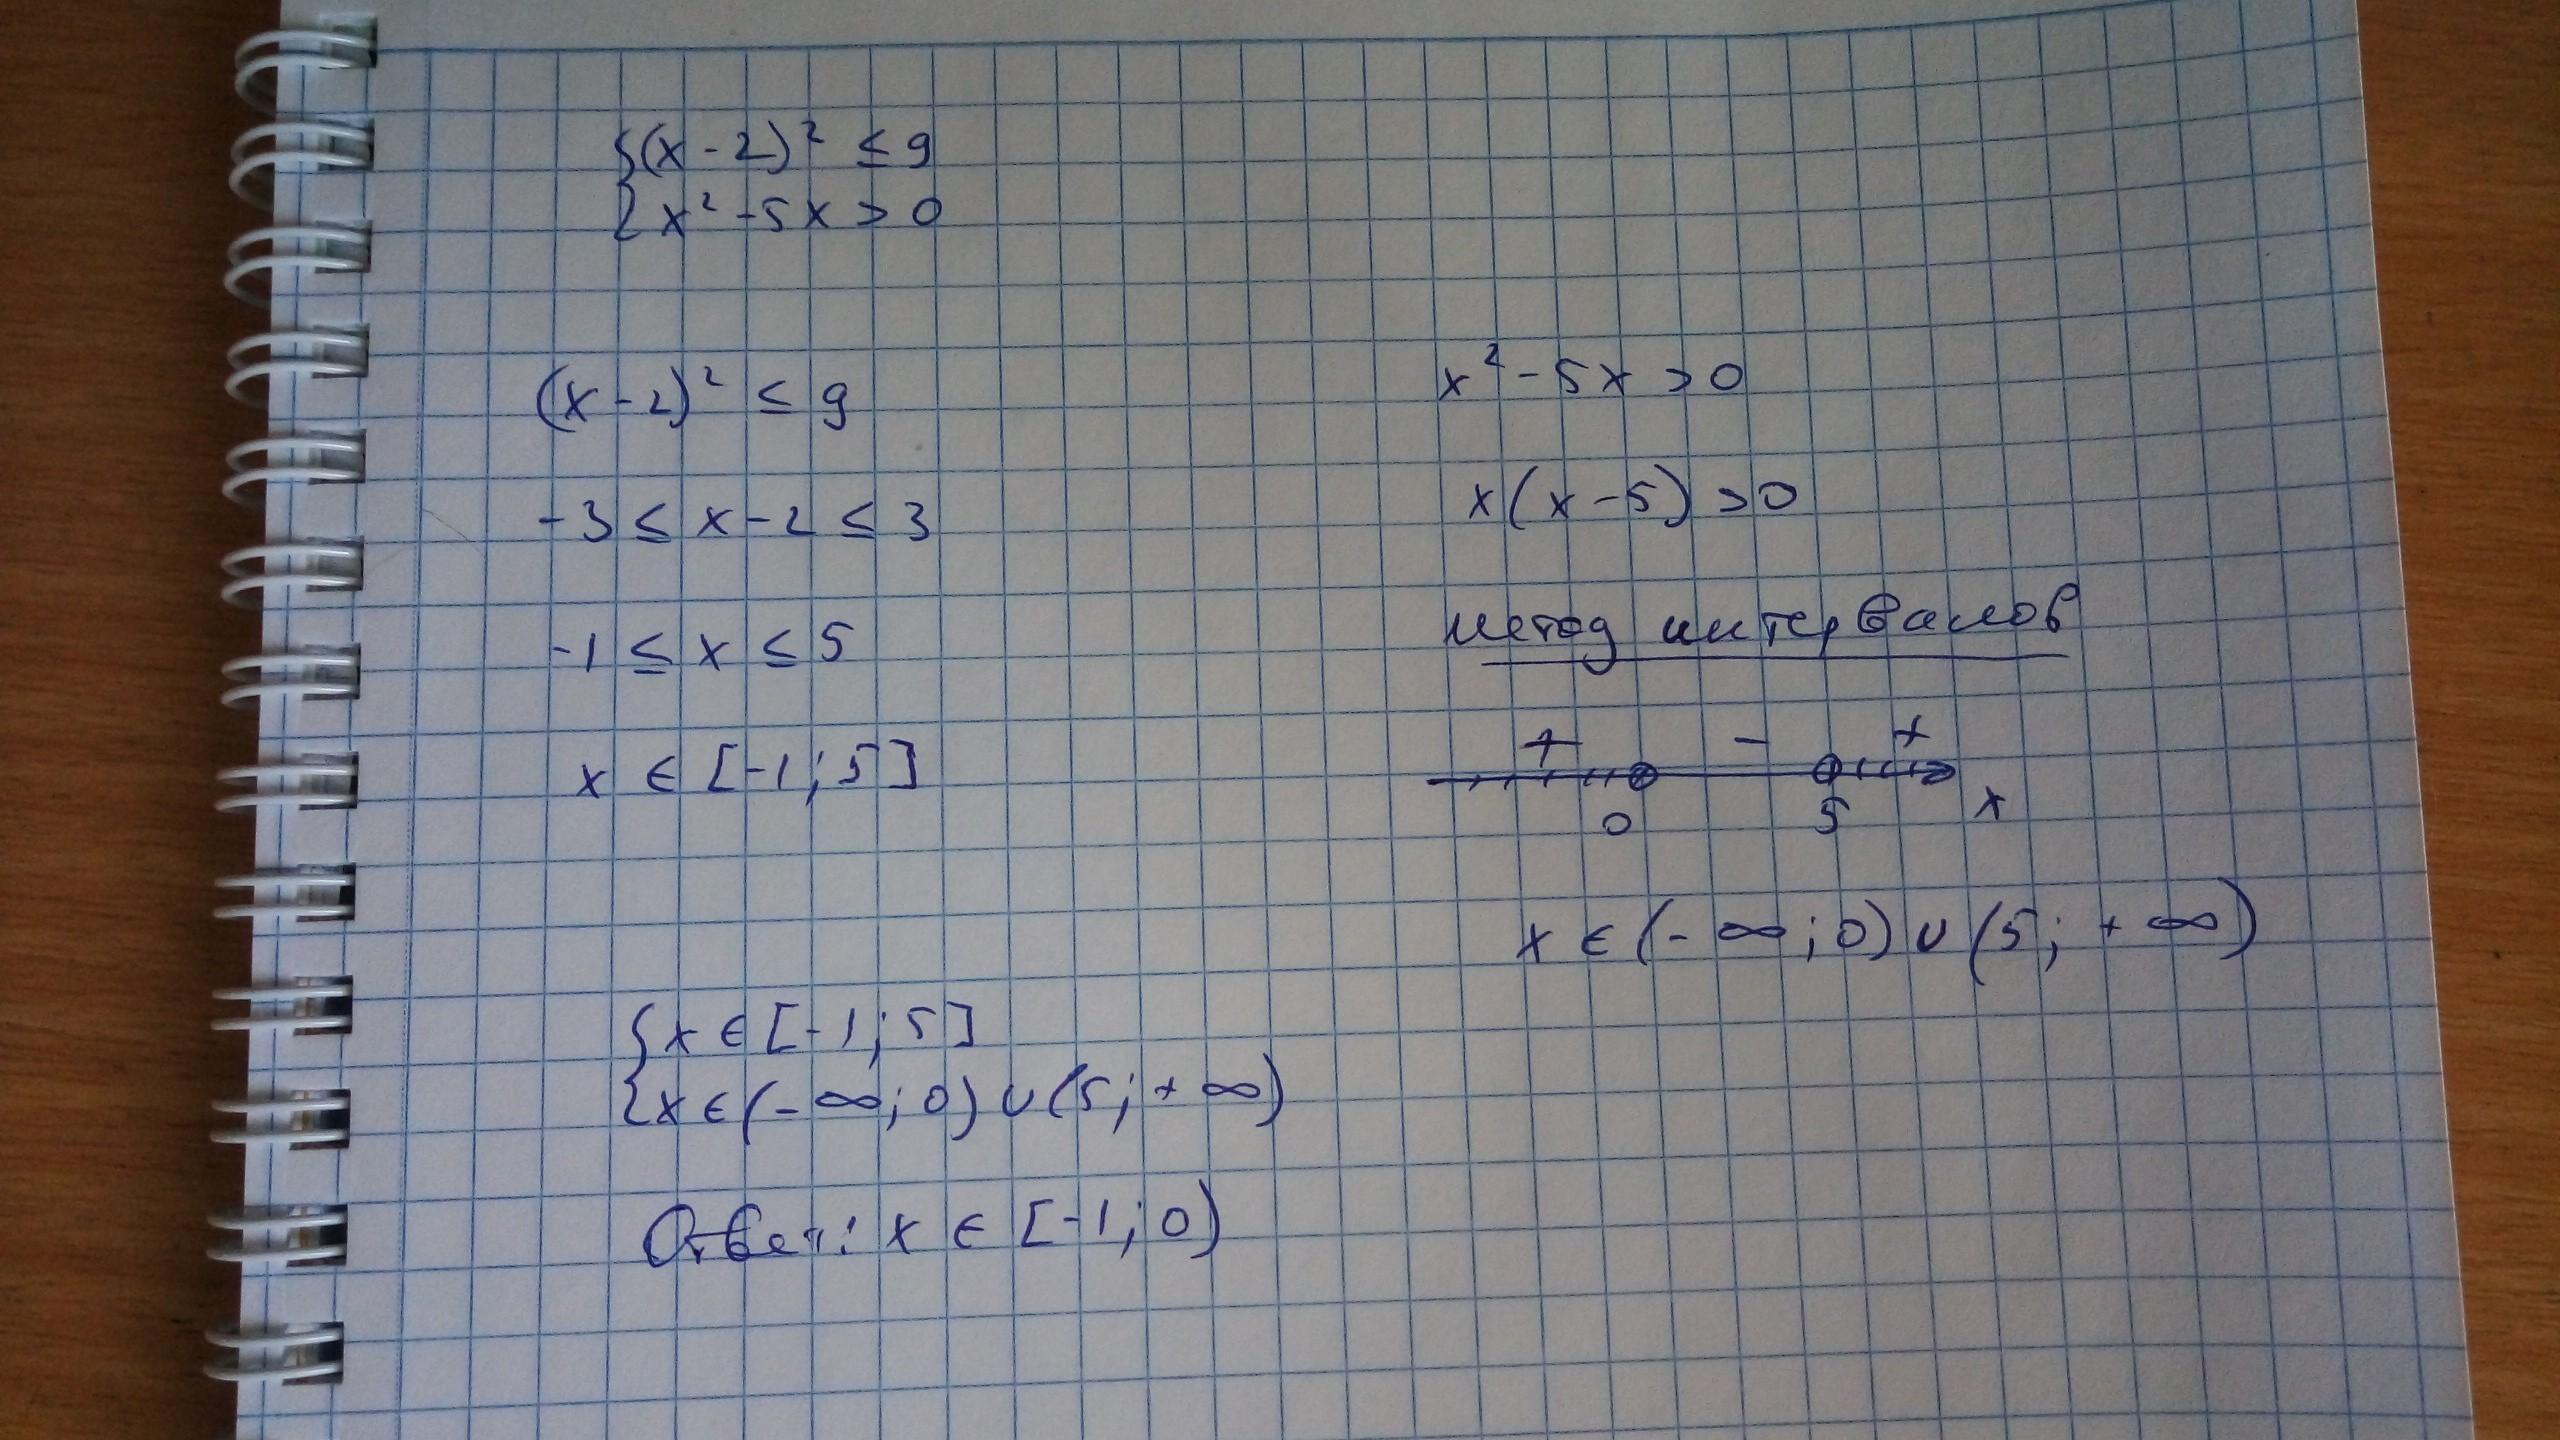 {(x-2)² ≤ 9
{x² -5x > 0
(x-2)² ≤ 9
-3 ≤ x-2 ≤ 3
-1 ≤ x ≤ 5
x ∈ [-1; 5]
x² - 5x > 0
x(x-5) > 0
метод интервалов
+ - +
0 5 x
x ∈ (-∞; 0) ∪ (5; +∞)
{x ∈ [-1; 5]
{x ∈ (-∞; 0) ∪ (5; +∞)
Ответ: x ∈ [-1; 0)